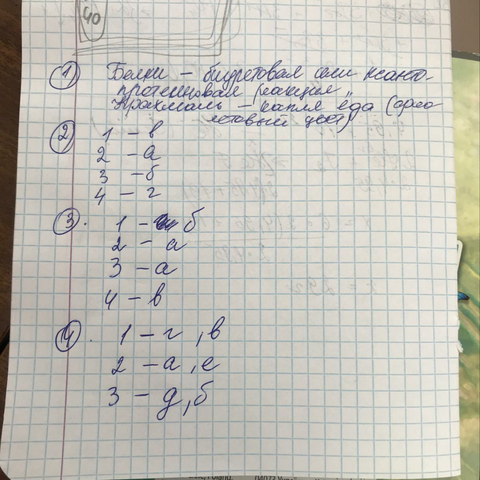 40
1 Белки – биуретовая или ксанто-
протеиновая реакция
крахмаль – капля йода (фио
летовый цвет)
2 1 – в
2 – а
3 – б
4 – г
3. 1 – б
2 – а
3 – а
4 – в
4. 1 – г, в
2 – а, е
3 – д, б